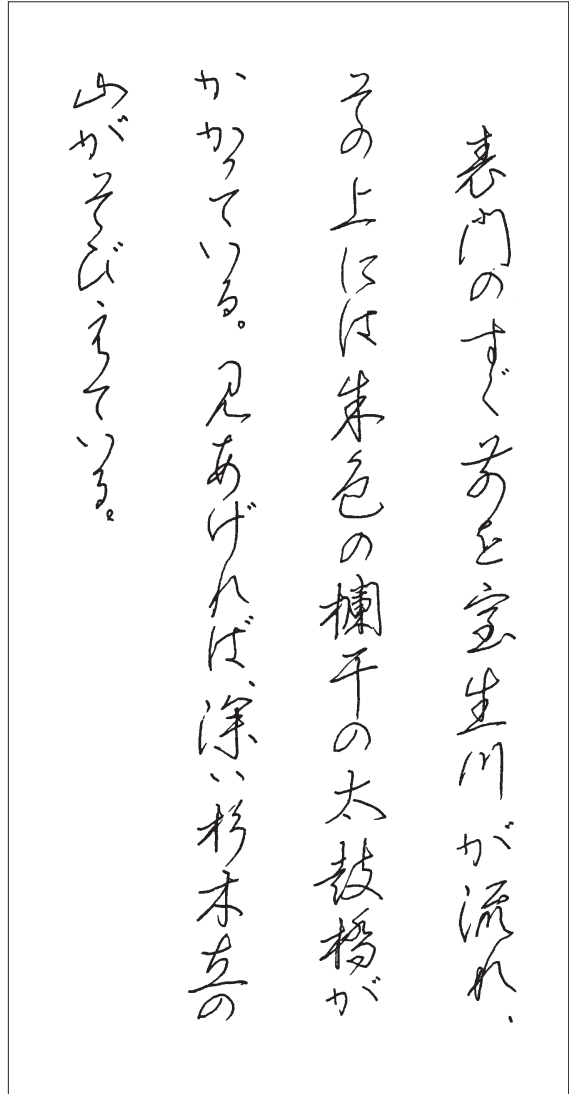 表門のすぐ前を室生川が流れ、
その上には朱色の欄干の太鼓橋が
かかっている。見あげれば、深い杉木立の
山がそびえている。